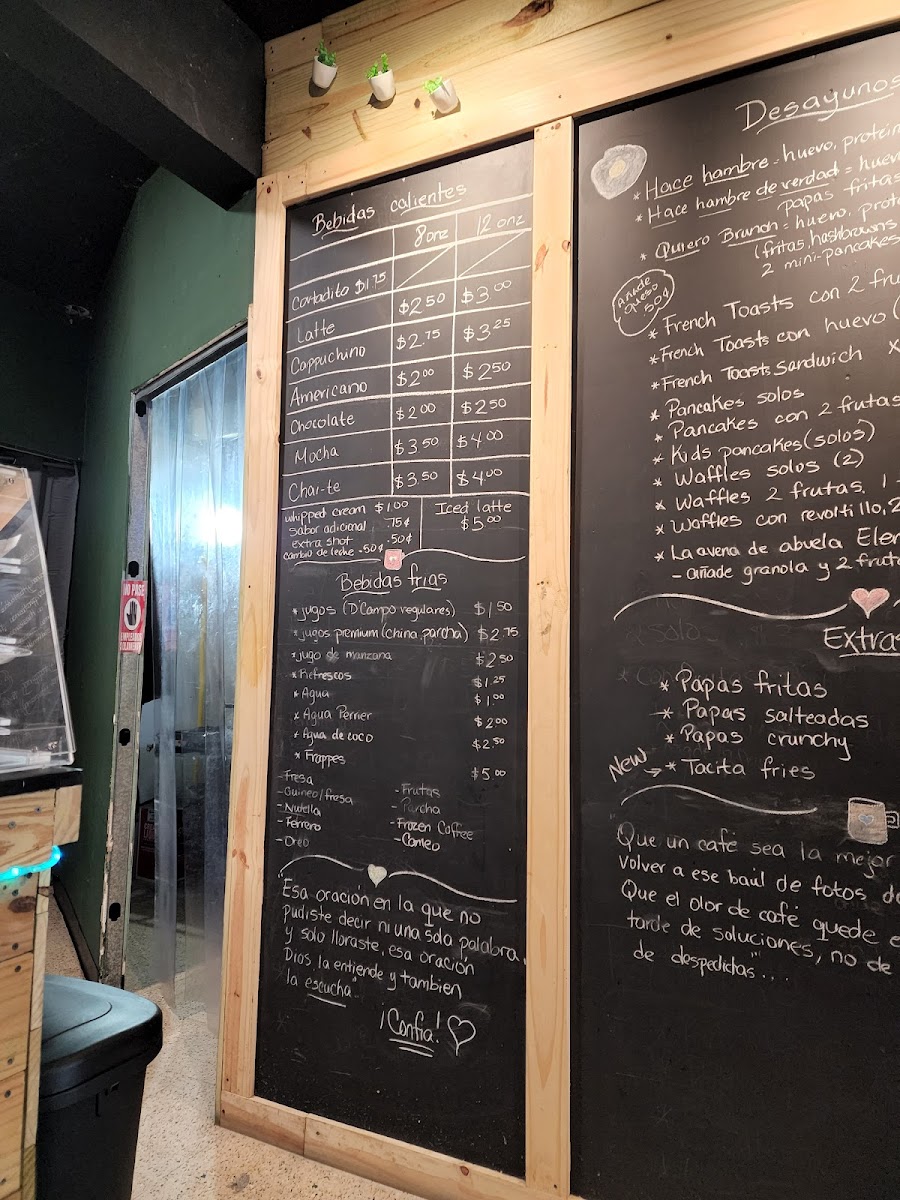 Bebidas calientes
8onz 12 onz
Cortadito $1.75
Latte $2.50 $3.00
Cappuchino $2.75 $3.25
Americano $2.00 $2.50
Chocolate $2.00 $2.50
Mocha $3.50 $4.00
Chai-te $3.50 $4.00
whipped cream $1.00
sabor adicional .75¢
extra shot .50¢
cambio de leche .50¢
Iced latte
$5.00
Bebidas frias
*jugos (D'Campo regulares) $1.50
*jugos premium (china, parcha) $2.75
*jugo de manzana $2.50
*Refrescos $1.25
*Agua $1.00
*Agua Perrier $2.00
*Agua de coco $2.50
*Frappes $5.00
-Fresa
-Guineo/fresa
-Nutella
-Ferrero
-Oreo
-Frutas
-Parcha
-Frozen Coffee
-Comeo
"Esa oración en la que no
pudiste decir ni una sola palabra,
y solo lloraste, esa oración
Dios la entiende y tambien
la escucha"
¡Confia!
Desayunos
*Hace hambre = huevo, protein
*Hace hambre de verdad = huev
papas fritas
*Quiero Brunch = huevo, prot
(fritas, hashbrowns
2 mini-pancakes
Añade
queso
50¢
*French Toasts con 2 fru
*French Toasts con huevo (
*French Toasts Sandwich
*Pancakes solos
*Pancakes con 2 frutas
*Kids pancakes (solos)
*Waffles solos (2)
*Waffles 2 frutas, 1
*Waffles con revoltillo, 2
*La avena de abuela Elen
-añade granola y 2 fruta
Extras
*Papas fritas
*Papas salteadas
*Papas crunchy
New → *Tocita fries
Que un café sea la mejor
Volver a ese baúl de fotos de
Que el olor de café quede e
tarde de soluciones, no de
de despedidas"...
NO PASE
EMPLEADOS
SOLAMENTE